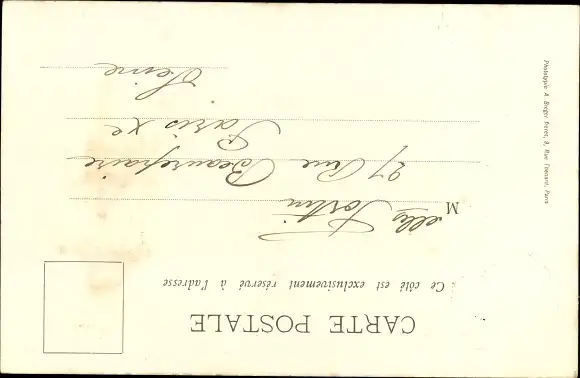 CARTE POSTALE
Ce côté est exclusivement réservé à l'adresse
Melles Fortin
27 Rue Beaurepaire
Paris Xe
Seine
Phototypie A. Breger frères, 9, Rue Thénard, Paris